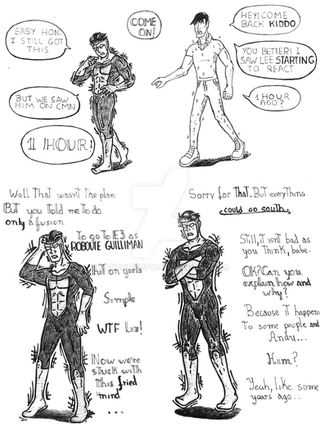 EASY HON.
I STILL GOT
THIS
COME
ON!
HEY! COME
BACK KIDDO
YOU BETTER! I
SAW LEE STARTING
TO REACT
BUT WE SAW
HIM ON CMN
1 HOUR
AGO?
11 HOUR!
Well That wasn't the plan
But you told me to do
only a fusion
To go to E3 as
ROBOUTE GUILLIMAN
Hit on girls
Simple
WTF Lee!
Now we're
stuck with
this fried
mind
...
Sorry for That. But everything
could go south.
Still, it isn't bad as
you think, babe.
OK? Can you
explain how and
why?
Because it happens
to some people and
Andru...
Hum?
Yeah, like some
years ago...